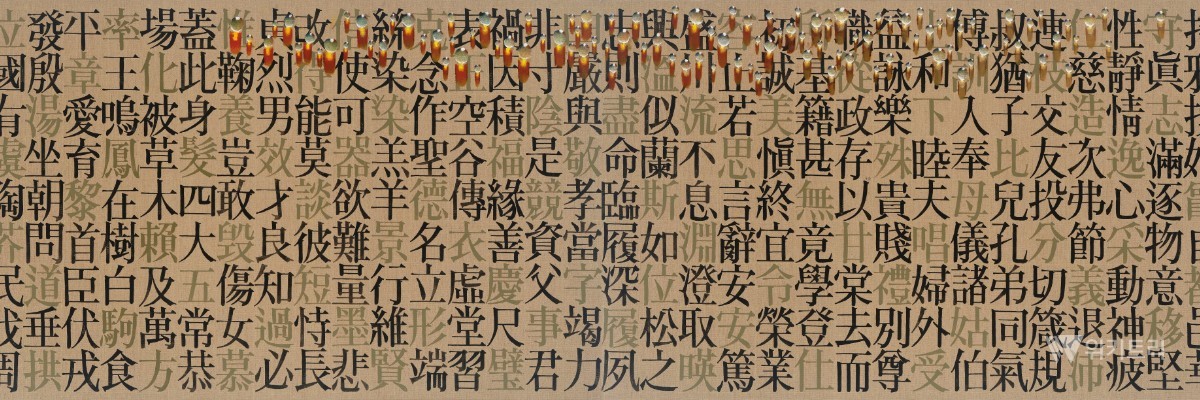 立國有虞陶民伐周
發殷湯坐朝問道垂拱
平章愛育黎首臣伏戎
率王鳴鳳在樹白駒食
場化被草木賴及萬方
蓋此身髮四大五常恭
鞠養豈敢毀傷女慕
貞烈男效才良知過必
改得能莫談彼短恃長
使可器欲難量墨悲
絲染染羔羊景行維賢
克念作聖德名立形端
表空谷傳衣虛堂習
禍因積福緣善慶尺璧
非寸陰是競資父事君
嚴與敬孝當字竭力
忠則盡命臨履深履夙
興溫似蘭斯如位松之
盛川流不息淵澄取暎
容止若思言辭安安篤
初誠美愼終宜令榮業
基籍甚無竟學登仕
職從政存以甘棠去而
益詠樂殊貴賤禮別尊
和下睦夫唱婦外受
傅訓人奉母儀諸姑伯
叔猶子比兒孔弟同氣
連枝交友投分切箴規
仁慈造次弗節義退沛
性靜情逸心采動神疲
守眞志滿逐物意移堅
위키트리